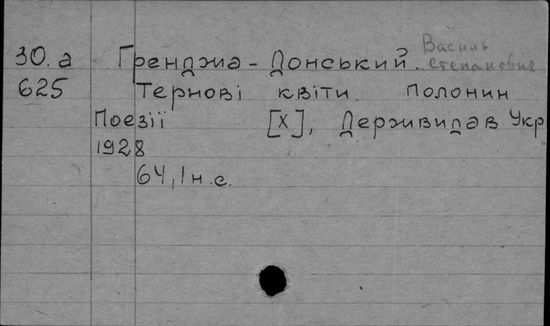 30.а Гренджа-Донський. Василь Степанович
625 Тернові квіти полонин
Поезії [Х], Держвидав Укр
1928
64, 1 н.с.